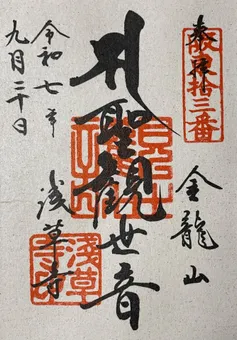 奉拝
坂東拾三番
金龍山
聖観世音
浅草寺
令和七年
九月二十日